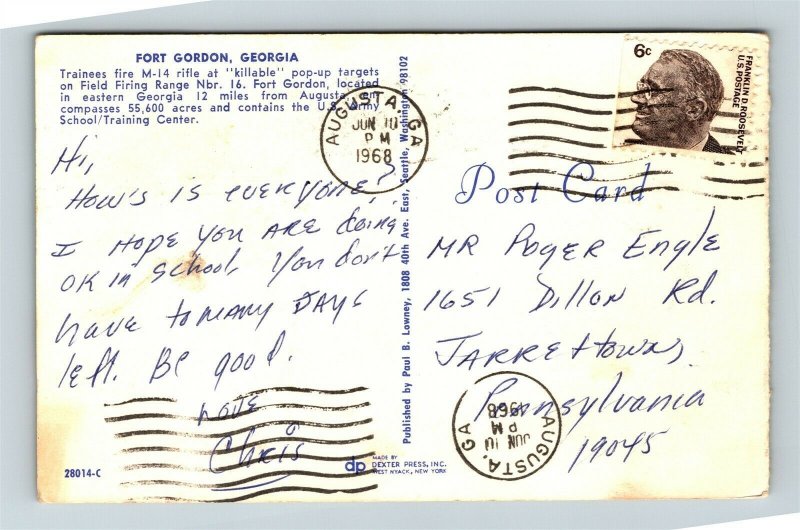 FORT GORDON, GEORGIA
Trainees fire M-14 rifle at "killable" pop-up targets
on Field Firing Range Nbr. 16. Fort Gordon, located
in eastern Georgia 12 miles from Augusta, en-
compasses 55,600 acres and contains the U.S. Army
School/Training Center.
Hi,
How's is everyone?
I Hope you ARE doing
OK in school. You don't
have to many DAYS
left. Be good.
Love
Chris
28014-C
AUGUSTA, GA
JUN 10
PM
1968
Published by Paul B. Lowney, 1808 40th Ave. East, Seattle, Washington 98102
dp
MADE BY
DEXTER PRESS, INC.
WEST NYACK, NEW YORK
6c
FRANKLIN D. ROOSEVELT
U.S. POSTAGE
Post Card
MR Roger Engle
1651 Dillon Rd.
JARREttown,
Pennsylvania
19045
AUGUSTA, GA
JUN 10
PM
1968